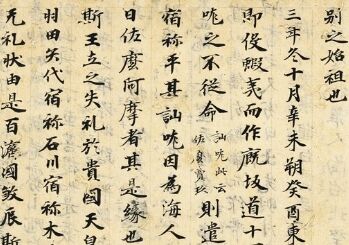 別之始祖也
三年冬十月辛未朔癸酉東
即役蝦夷而作厩坂道十一
吪之不従命 訕吪此云 佐麼賣玖 則遣
宿祢平其訕吪因為海人
日佐麼阿摩者其是縁也
斯王立之失礼於貴國天皇
羽田矢代宿祢石川宿祢木
无礼状由是百濟國敏辰斯